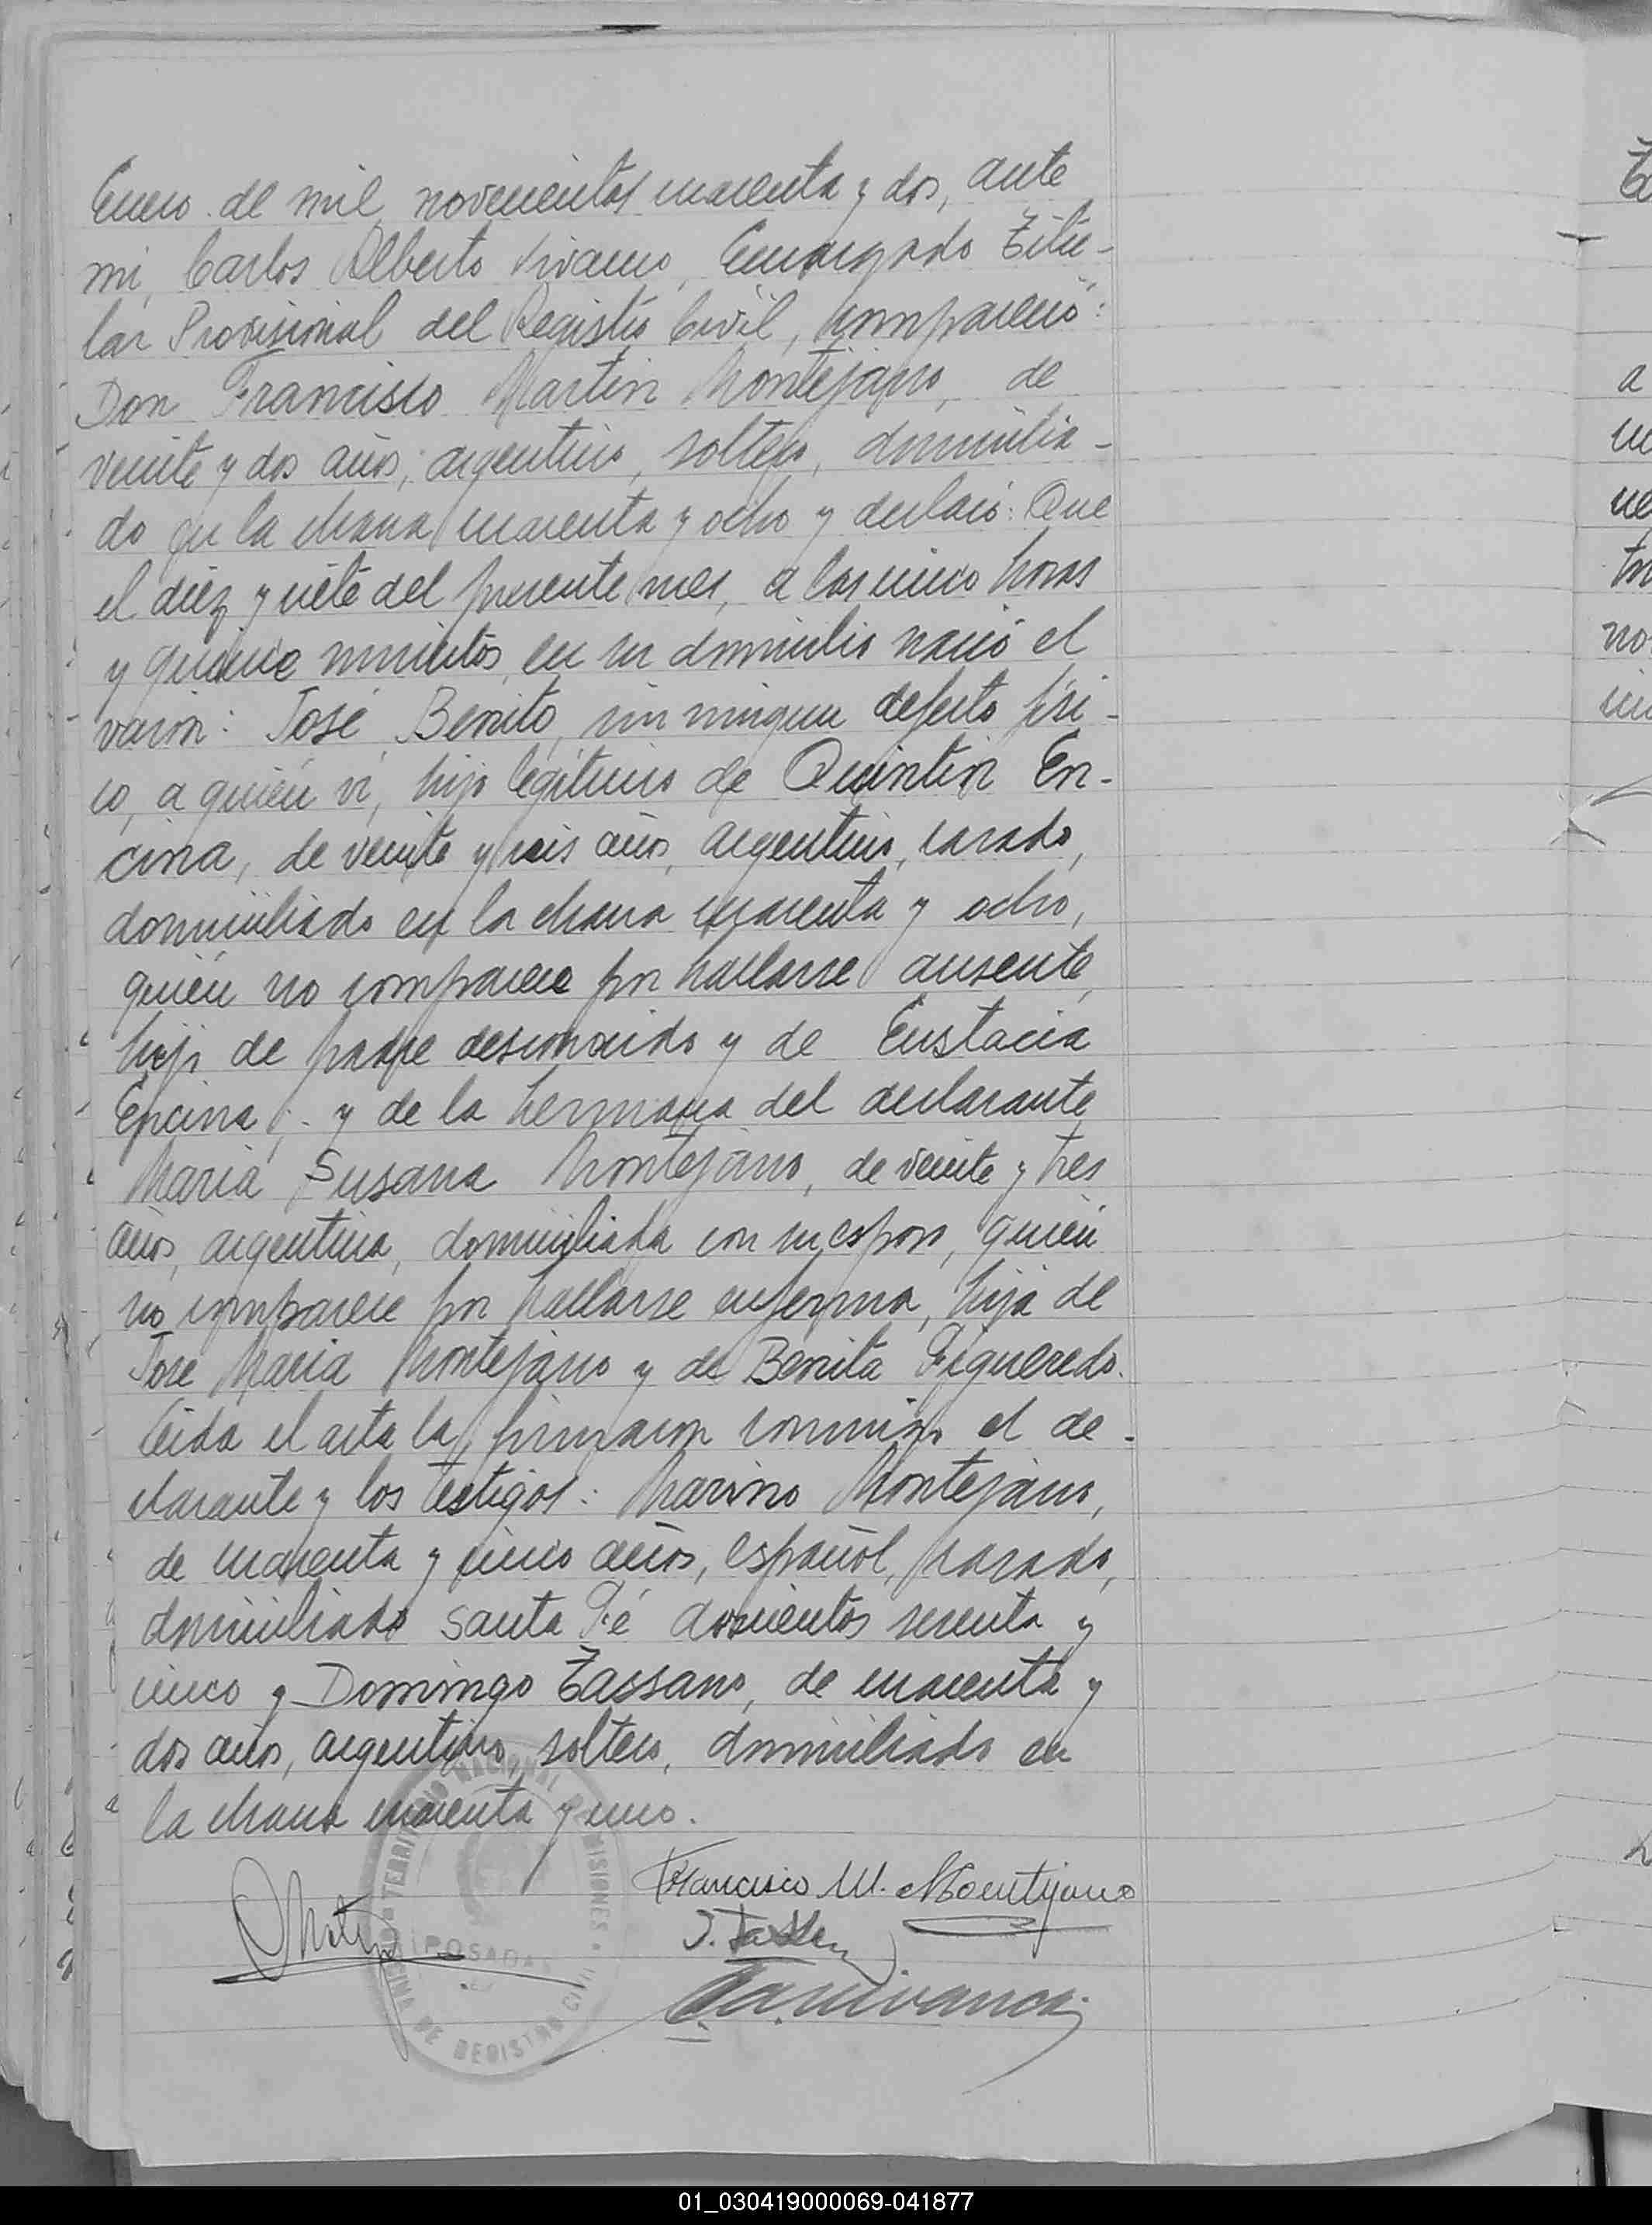 Enero de mil novecientos cuarenta y dos, ante
mi, Carlos Alberto Vivanco, Encargado Titu-
lar Provisional del Registro Civil, compareció:
Don Francisco Martin Montejano, de
veinte y dos años, argentino, soltero, domicilia-
do en la chacra cuarenta y ocho y declaró: Que
el diez y siete del presente mes, a las cinco horas
y quince minutos, en su domicilio nació el
varon: José Benito, sin ningun defecto físi-
co, a quién ví, hijo legítimo de Quintin En-
cina, de veinte y seis años, argentino, casado,
domiciliado en la chacra cuarenta y ocho,
quién no comparece por hallarse ausente,
hijo de padre desconocido y de Eustacia
Encina; y de la hermana del declarante
María Susana Montejano, de veinte y tres
años, argentina, domiciliada con su esposo, quién
no comparece por hallarse enferma, hija de
José María Montejano y de Benita Figueredo.
Leida el acta la firmaron conmigo el de-
clarante y los testigos: Marino Montejano,
de cuarenta y cinco años, español, casado,
domiciliado Santa Fé doscientos sesenta y
cinco y Domingo Tassano, de cuarenta y
dos años, argentino, soltero, domiciliado en
la chacra cuarenta y uno.
Francisco M. Montejano
TERRITORIO NACIONAL DE MISIONES
POSADAS
OFICINA DE REGISTRO CIVIL
01_030419000069-041877